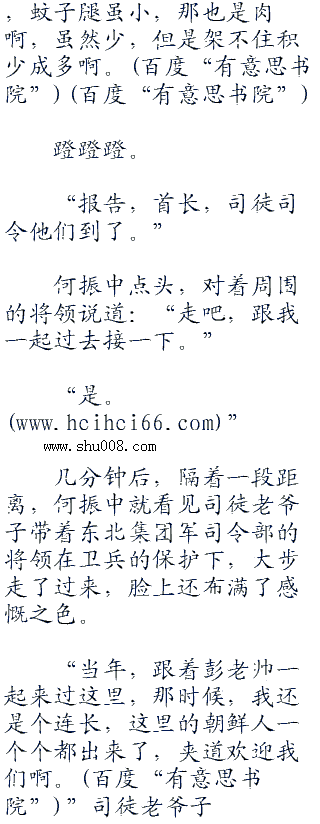 ，蚊子腿虽小，那也是肉
啊，虽然少，但是架不住积
少成多啊。(百度“有意思书
院”)(百度“有意思书院”)
蹬蹬蹬。
“报告，首长，司徒司
令他们到了。”
何振中点头，对着周围
的将领说道：“走吧，跟我
一起过去接一下。”
“是。
(www.hcihci66.com)”
www.shu008.com
几分钟后，隔着一段距
离，何振中就看见司徒老爷
子带着东北集团军司令部的
将领在卫兵的保护下，大步
走了过来，脸上还布满了感
慨之色。
“当年，跟着彭老帅一
起来过这里，那时候，我还
是个连长，这里的朝鲜人一
个个都出来了，夹道欢迎我
们啊。(百度“有意思书
院”)”司徒老爷子